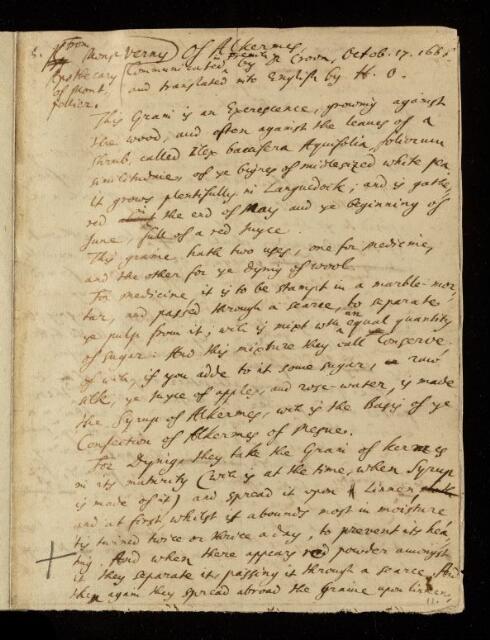 from Mons.r Verny Of Alkermes,
Apothecary Communicated in french by Dr Croun, Octob. 17. 166
of Mont, and translated into English by H. O.
pellier.
This Grain is an Excrescence, growing against
the wood, and often against the leaves of a
shrub, called Ilex baccifera Aquifolia, foliorum
similitudine, of ye bignes of middlesized white pea
It grows plentifully in Languedock; and is gathe,
red the end of May and ye beginning of
June, full of a red Juyce.
This graine hath two uses, one for medicine,
and the other for ye dying of wool.
For medicine, it is to be stampt in a marble-mor,
tar, and passed through a searce, to separate
ye pulp from it; wch is mixt wth an equal quantity
of sugar: And this mixture they call Conserve.
of wch, if you adde to it some sugar, raw
silk, ye juyce of apple, and rose-water, is made
the Syrup of Alkermes, wch is the Basis of ye
Confection of Alkermes of Mesue.
For Dying, they take the Grain of kermes
in its maturity (wch is at the time, when Syrup
is made of it) and spread it upon Linnen,
and at first, whilst it abounds most in moisture
tis turned twice or thrice a day, to prevent its hea,
ting. And when there appears red powder amongst
it they separate it, passing it through a searce. And
then again they spread abroad the Graine upon linnen,